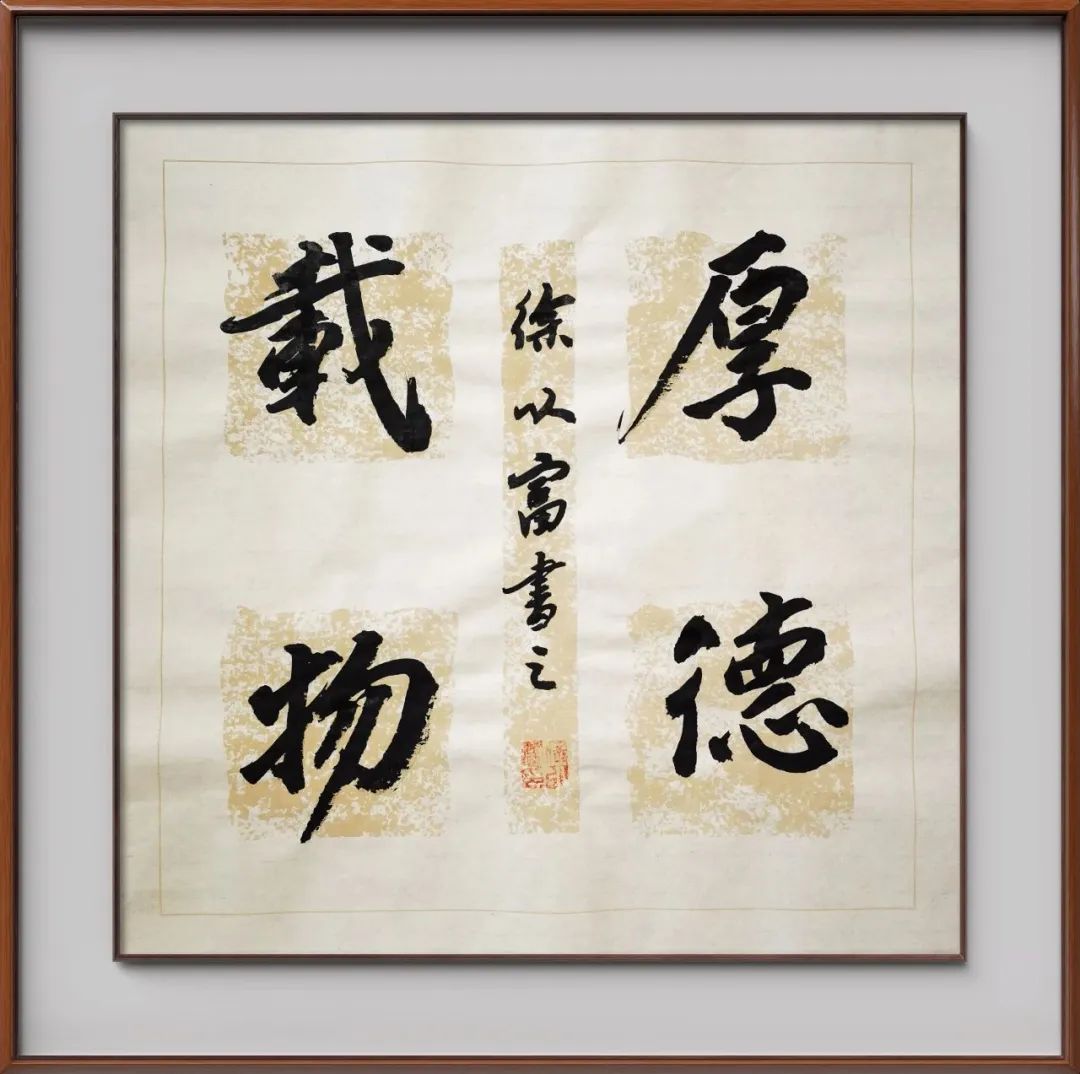 厚德
載物
徐以富書之